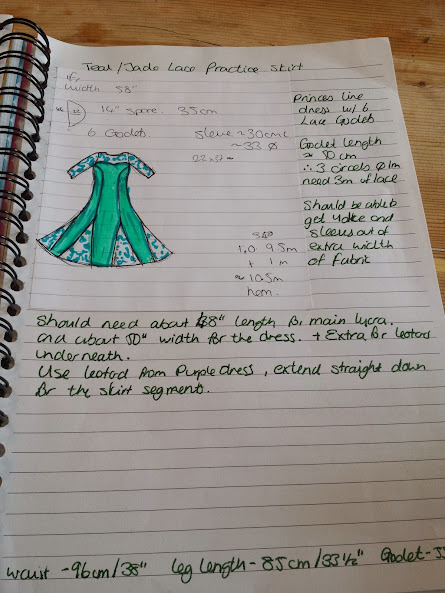 Teal/Jade Lace Practice Skirt
if
width 58"
14" spare. 35cm
6 Godets.
sleeve ~30cm
~33 Ø
Princess line
dress w/ 6
Lace Godets
Godet length
≈ 50 cm
∴ 3 circels Ø 1m
need 3m of lace
Should be able to
get yoke and
sleeves out of
extra width
of fabric
9.5m
+ 1m
≈ 10.5m
hem.
Should need about 48" length for main lycra.
and about 50" width for the dress. + Extra for leotard
underneath.
Use leotard from Purple dress, extend straight down
for the skirt segments.
waist - 96cm/38" leg length - 85cm/33½" Godet -